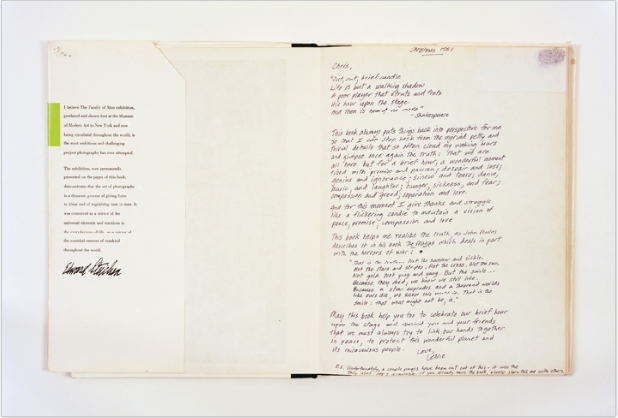 I believe The Family of Man exhibition,
produced and shown first at the Museum
of Modern Art in New York and now
being circulated throughout the world, is
the most ambitious and challenging
project photography has ever attempted.
The exhibition, now permanently
presented on the pages of this book,
demonstrates that the art of photography
is a dynamic process of giving form
to ideas and of explaining man to man. It
was conceived as a mirror of the
universal elements and emotions in
the everydayness of life—as a mirror of
the essential oneness of mankind
throughout the world.
Edward Steichen
Christmas 1981
Chris,
"Out, out, brief candle
Life is but a walking shadow
A poor player that struts and frets
His hour upon the stage
And then is heard no more"
-Shakespeare
This book always puts things back into perspective for me
so that I can step back from the myriad petty and
trivial details that so often cloud my waking hours
and glimpse once again the truth: that we are
all here but for a brief hour, a wonderful moment
filled with promise and passion; despair and loss;
genius and ignorance; sorrow and tears; dance,
music, and laughter; hunger, sickness, and fear;
compassion and greed; separation and love.
And for this moment I give thanks and struggle
like a flickering candle to maintain a vision of
peace, promise, compassion and love
This book helps me realize the truth, as John Fowles
describes it in his book The Magus which deals in part
with the horrors of war:
"That is the truth. Not the hammer and sickle.
Not the stars and stripes. Not the cross. Not the sun.
Not gold. Not ying and yang. But the smile...
Because they died, we know we still live.
Because a star explodes and a thousand worlds
like ours die, we know this world is. That is the
smile: that what might not be, is."
May this book help you too to celebrate our brief hour
upon the stage and remind you and your friends
that we must always try to link our hands together
in peace, to protect this wonderful planet and
its miraculous people.
Love,
Leslie
P.S. Unfortunately, a couple pages have been cut out of this - it was the
only used copy available. If you already have the book, please share this one with others.